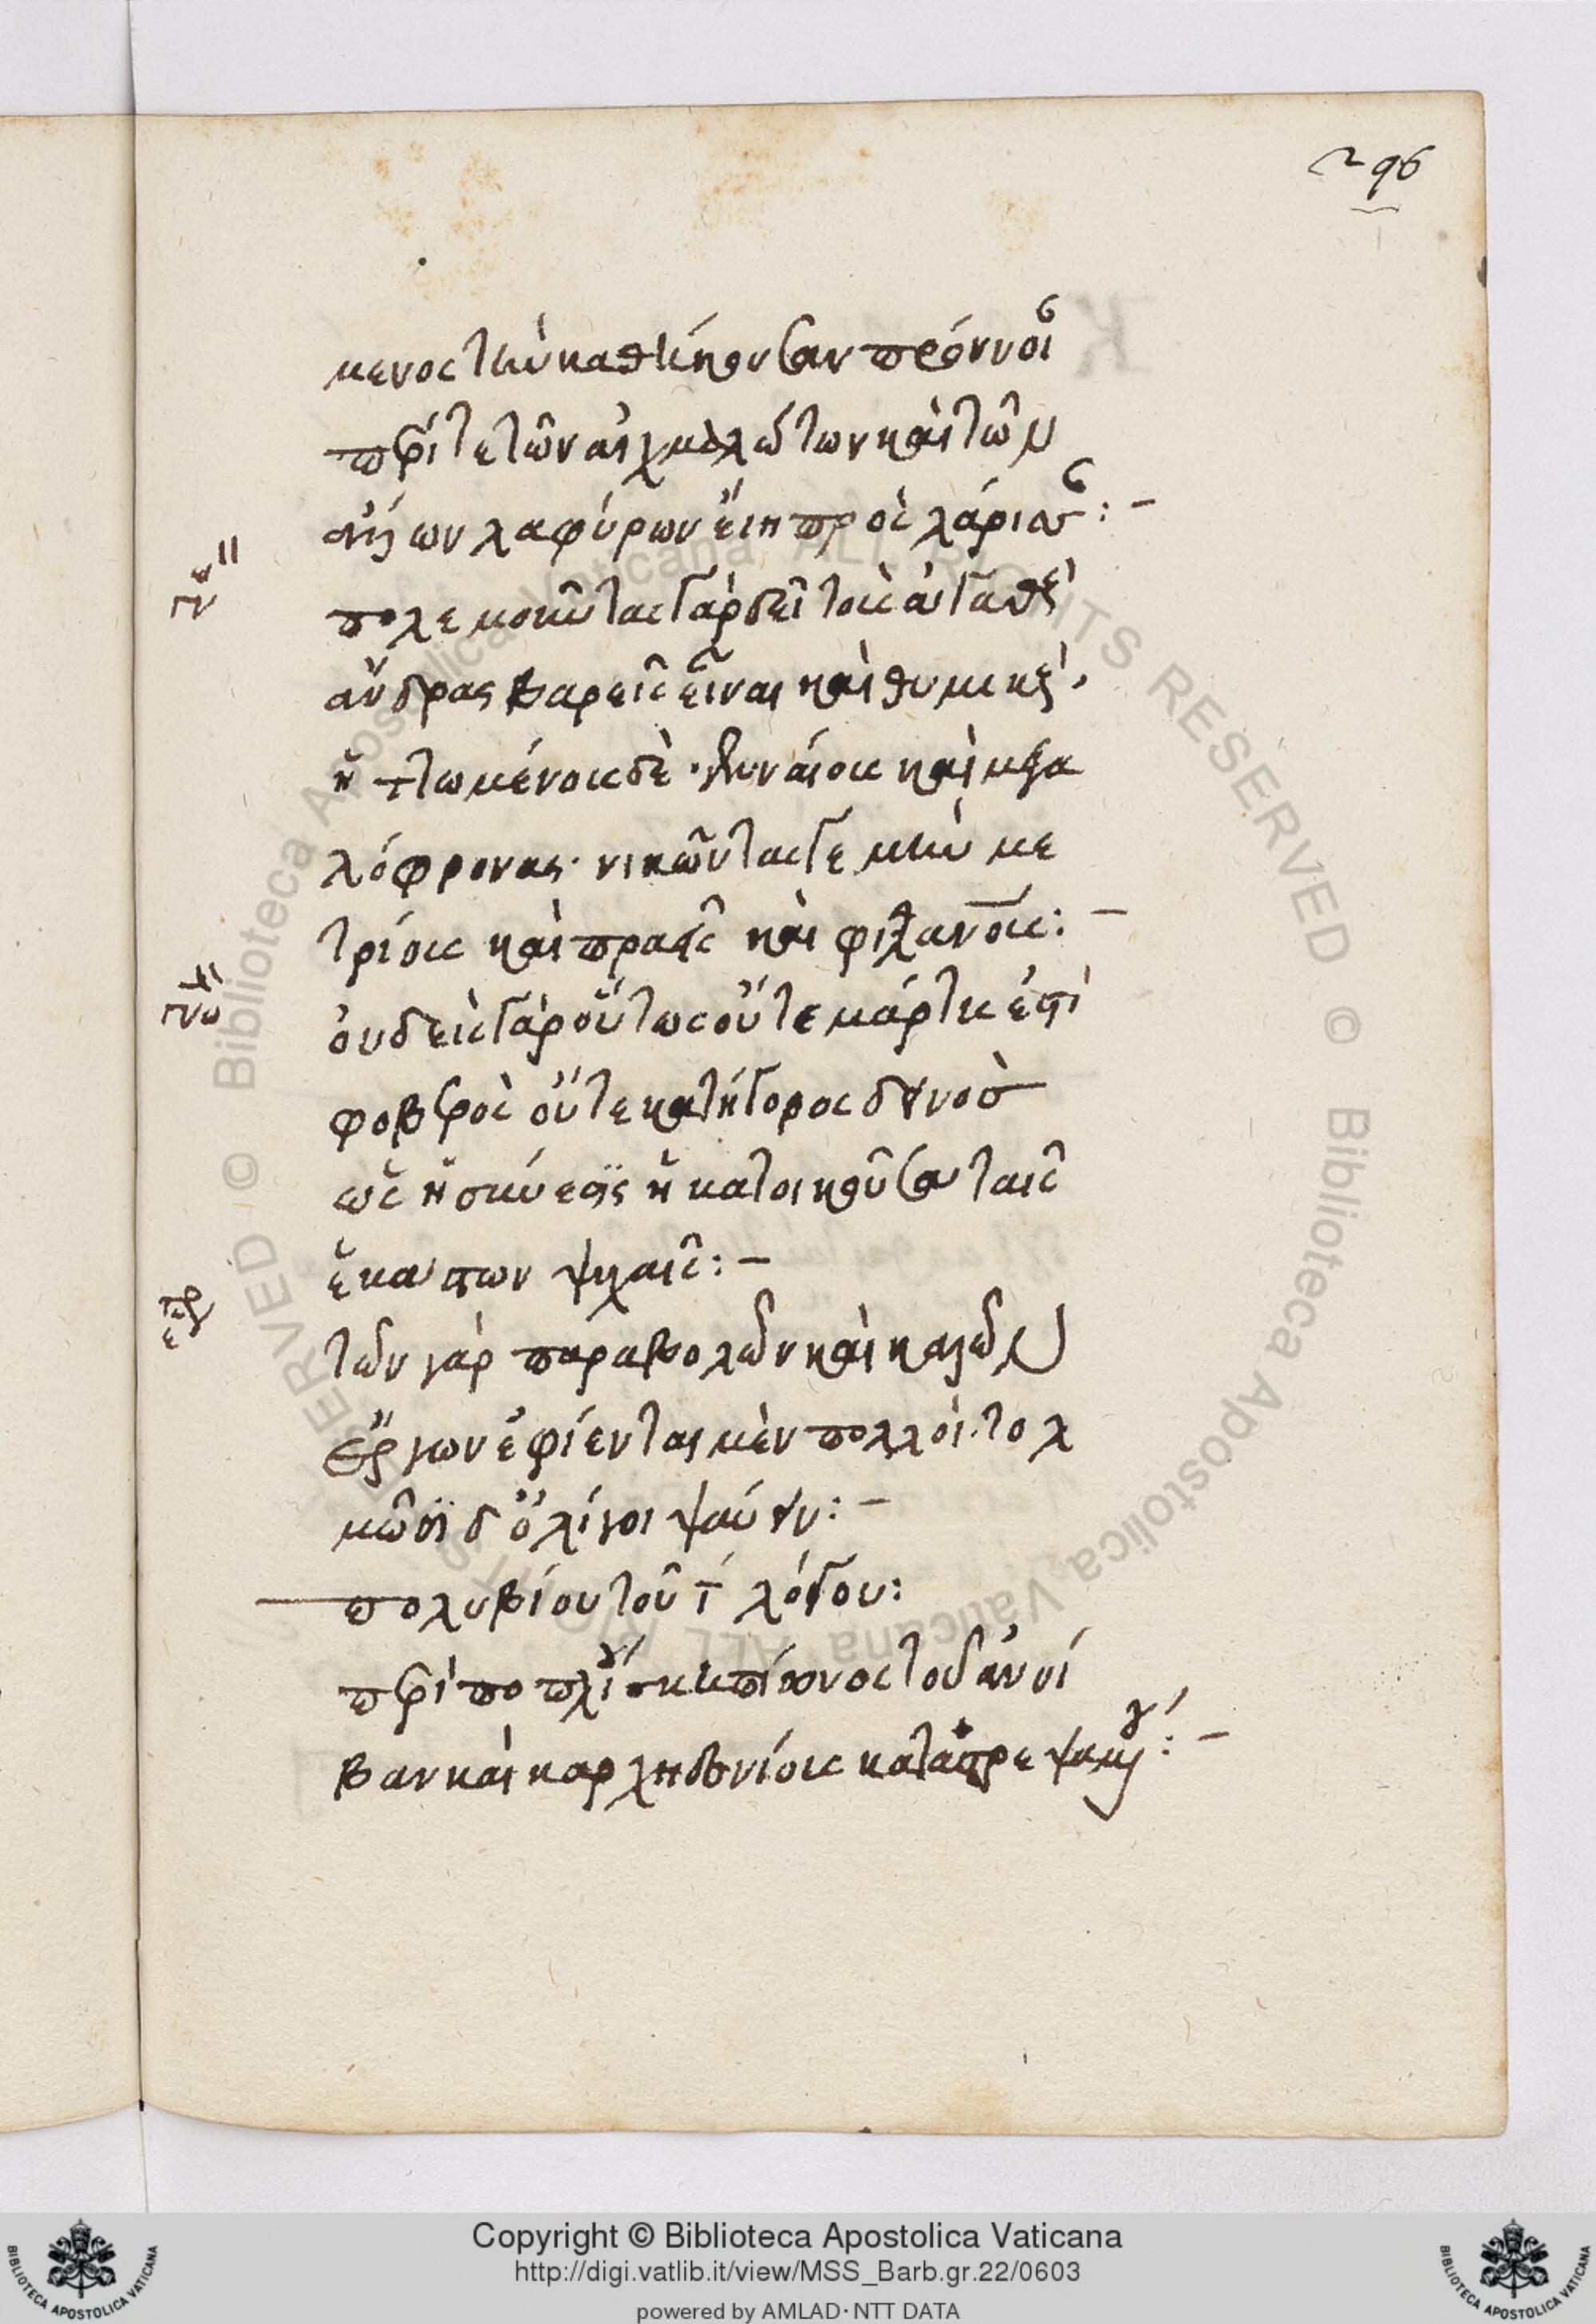 296
μενος τὴν καθήκουσαν πρόνοιαν
περί τε τῶν αἰχμαλώτων καὶ τῶν
ἄλλων λαφύρων ἔτι πρὸς
γν
πολεμοῦντας γὰρ δεῖ τοὺς ἀγαθοὺς
ἄνδρας βαρεῖς εἶναι καὶ θυμικούς,
ἡττωμένους δὲ γενναίους καὶ μεγα
λόφρονας· νικῶντάς γε μὴν με
τρίους καὶ πραεῖς καὶ φιλανους:-
γνω
οὐδεὶς γὰρ οὕτως οὔτε μάρτυς ἐστὶ
φοβερὸς οὔτε κατήγορος δεινὸς
ὡς ἡ σύνεσις ἡ κατοικοῦσα ταῖς
ἑκάστων ψχαις:-
τῶν γὰρ παραβόλων καὶ καλῶν
ἔργων ἐφίενται μὲν πολλοί· τολ
μῶσι δ' ὀλίγοι ψαύειν:-
πολυβίου τοῦ ι λόγου:
περὶ ποπλίου σκιπίωνος τοῦ ἀννί
βαν καὶ καρχηδονίους καταστρεψαμένου:-
Copyright © Biblioteca Apostolica Vaticana
http://digi.vatlib.it/view/MSS_Barb.gr.22/0603
powered by AMLAD·NTT DATA